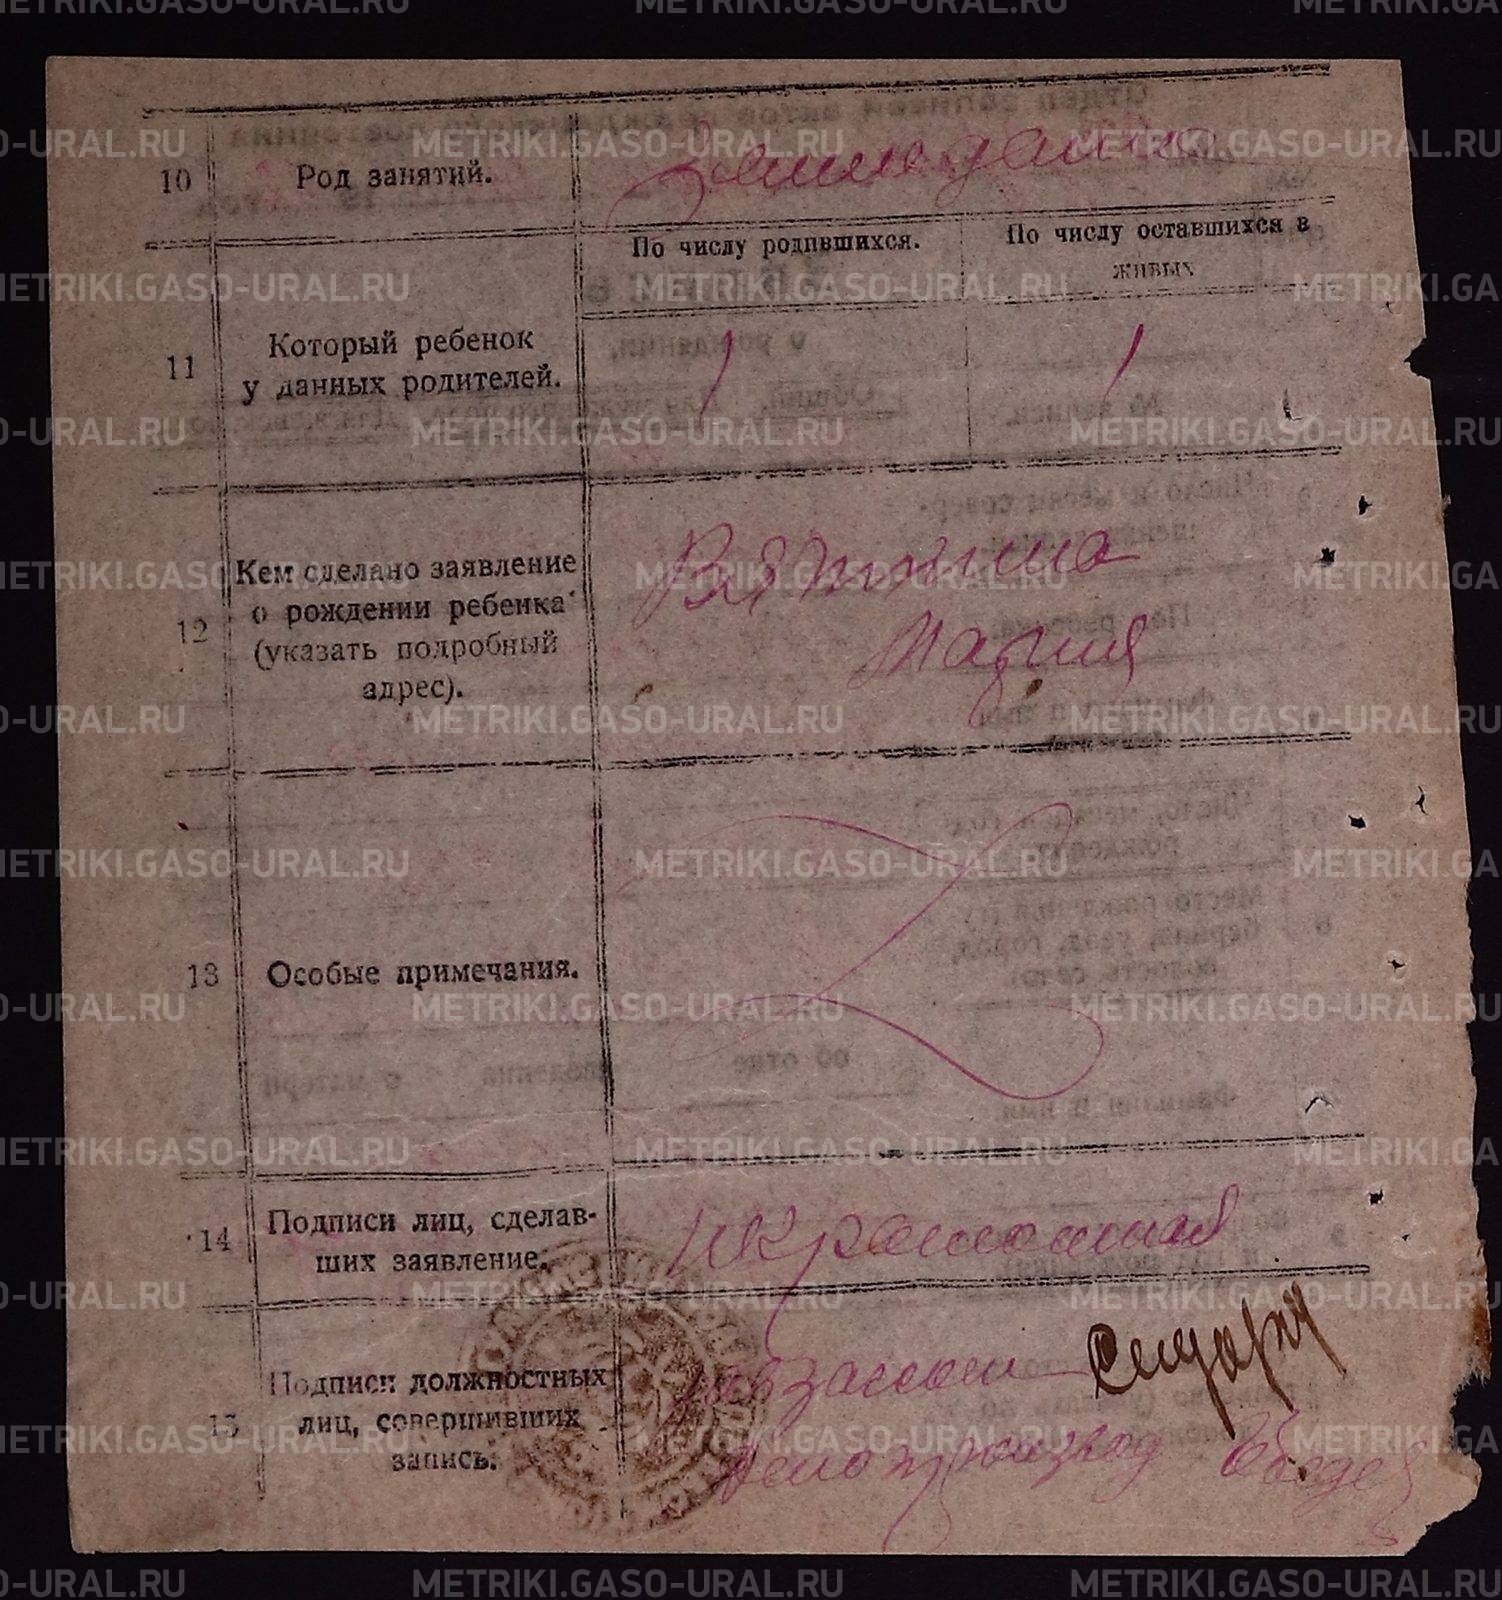 10 Род занятий. Земледелие
По числу родившихся. По числу оставшихся в живых
11 Который ребенок
у данных родителей. 1 1
12 Кем сделано заявление
о рождении ребенка
(указать подробный
адрес).
Вяткина
Мария
13 Особые примечания.
14 Подписи лиц, сделав-
ших заявление.
неграмотная
15 Подписи должностных
лиц, совершивших
запись.
Делопроизвод
METRIKI.GASO-URAL.RU